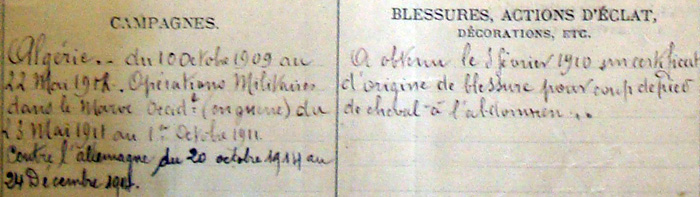 CAMPAGNES.
Algérie. - du 10 Octobre 1909 au
22 Mai 1911. Opérations Militaires
dans le Maroc Occidt (en guerre) du
23 Mai 1911 au 1er Octobre 1911.
Contre l'allemagne du 20 octobre 1914 au
24 Décembre
BLESSURES, ACTIONS D'ÉCLAT,
DÉCORATIONS, ETC.
A obtenu le 3 février 1910 un certificat
d'origine de blessure pour coup de pied
de cheval à l'abdomen ..